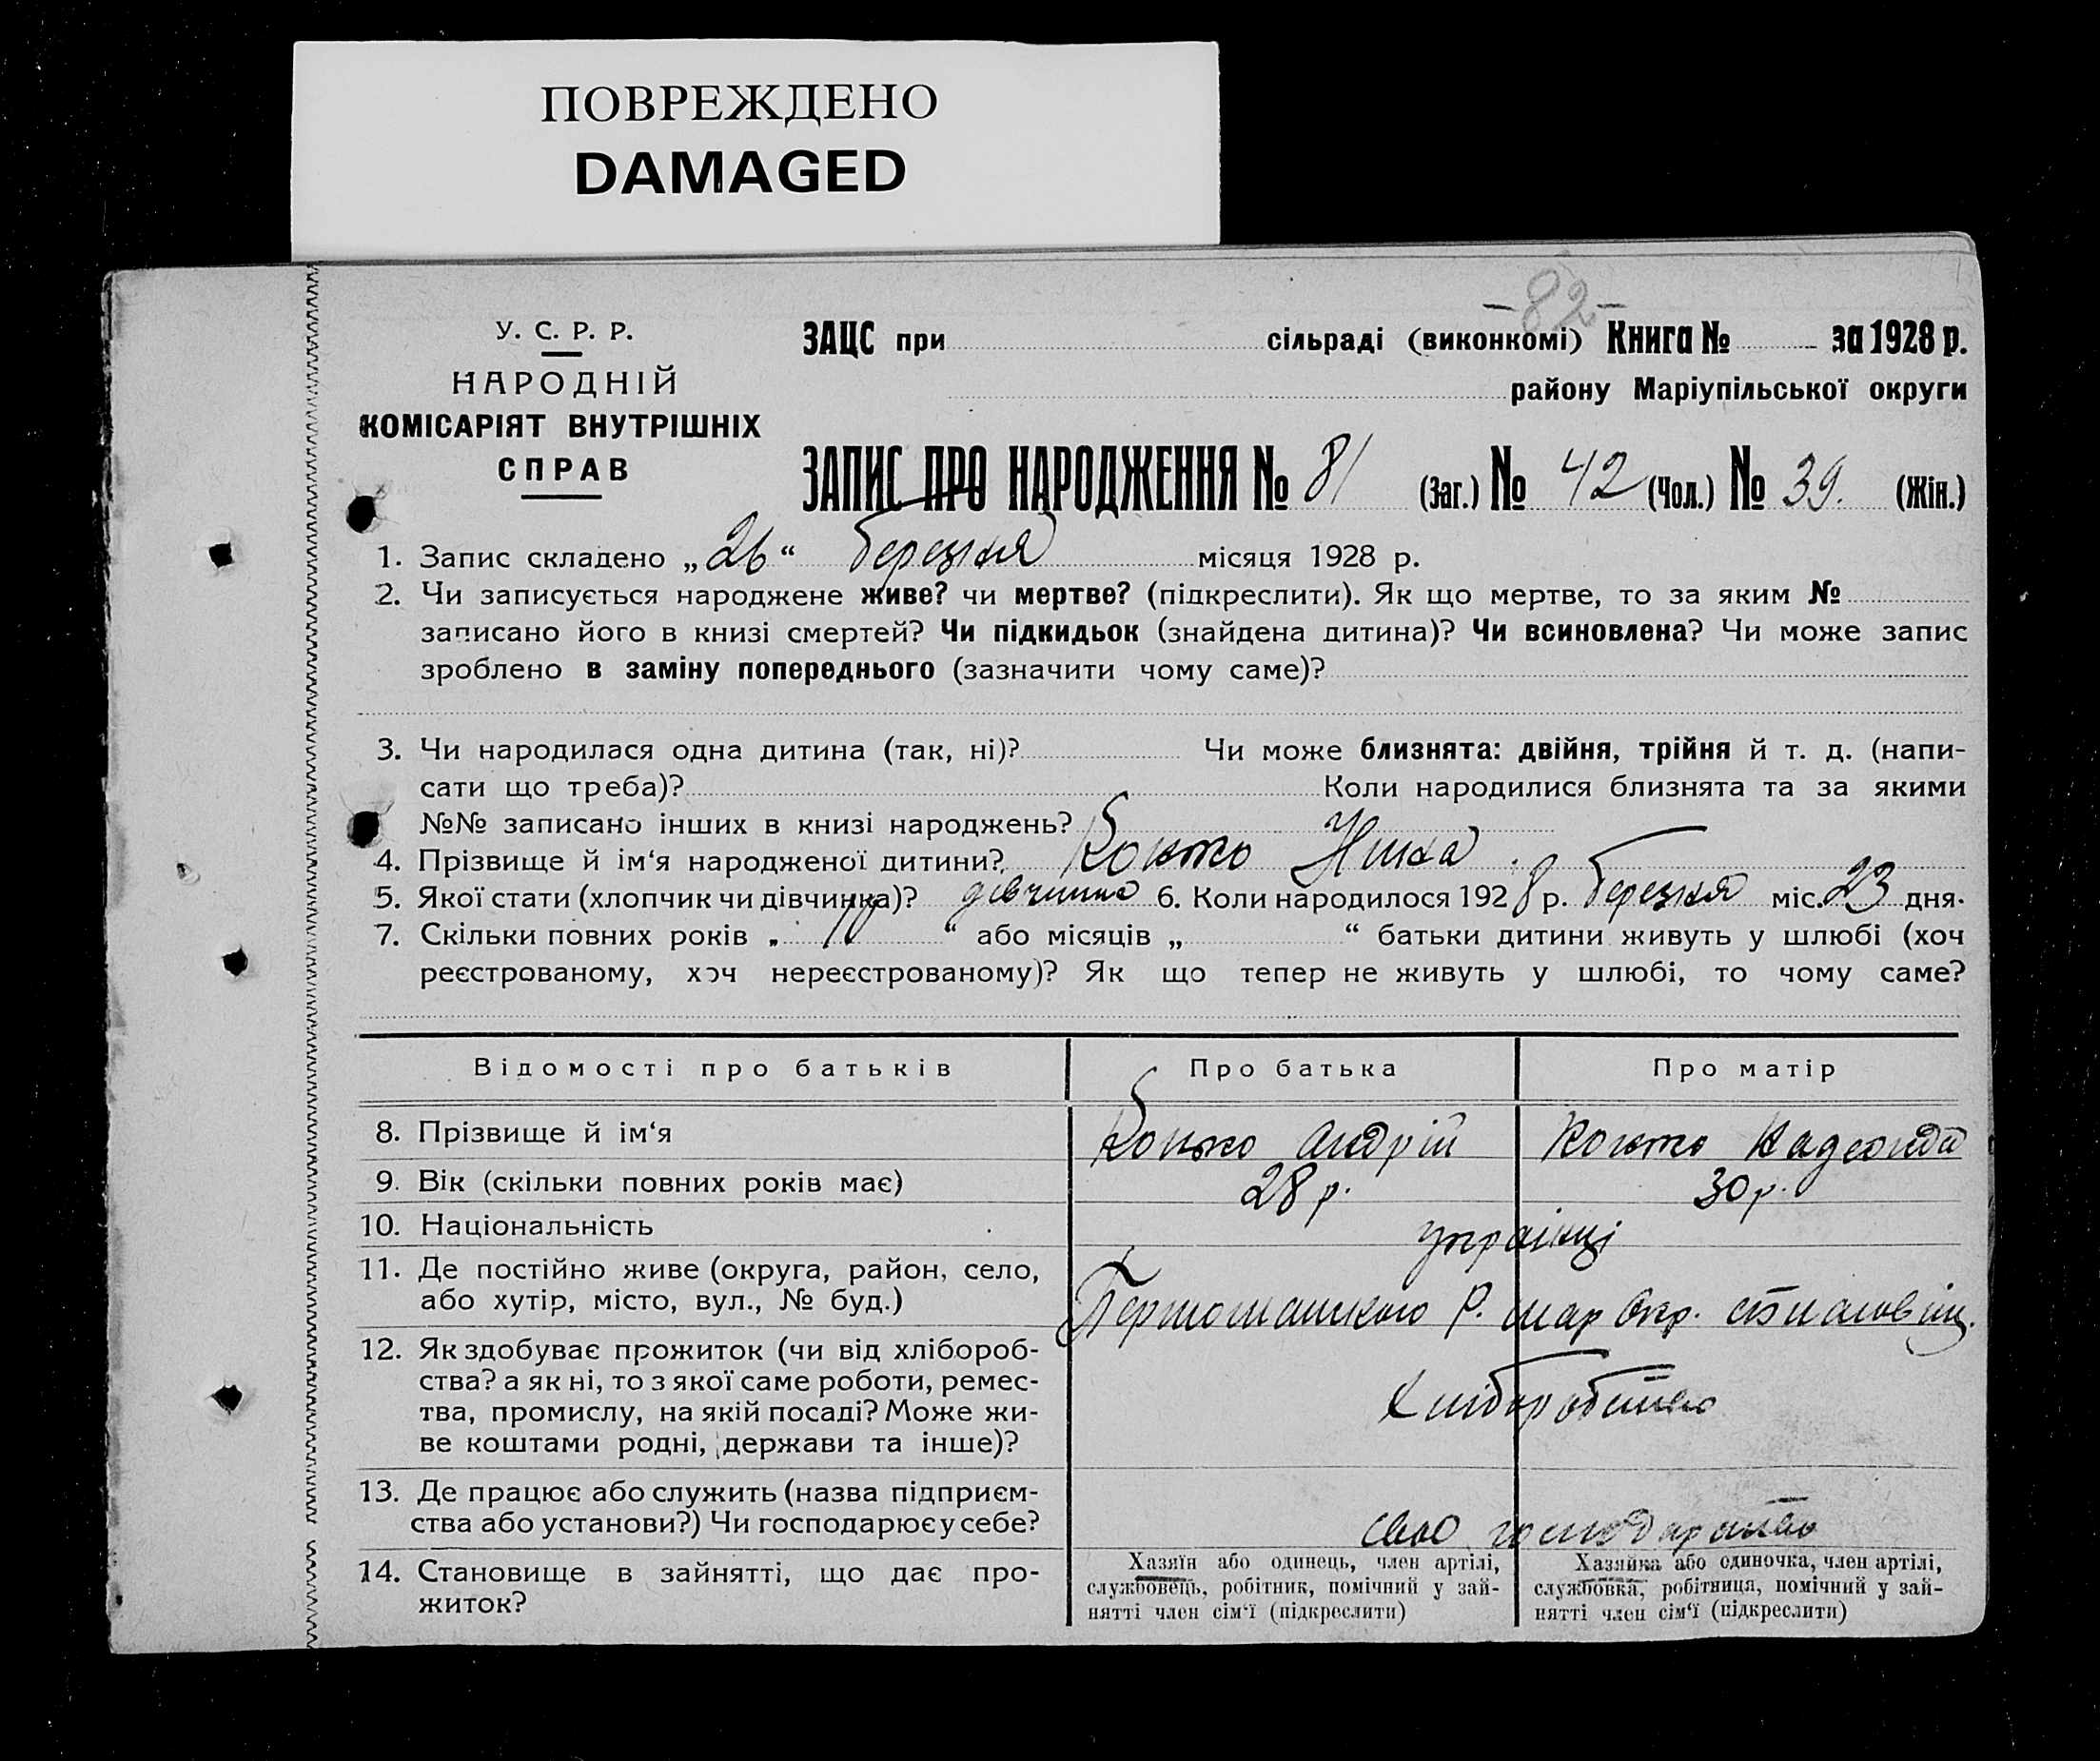 ПОВРЕЖДЕНО
DAMAGED
-82-
У. С. Р. Р.
НАРОДНІЙ
КОМІСАРІЯТ ВНУТРІШНІХ
СПРАВ
ЗАЦС при сільраді (виконкомі) Книга № за 1928 р.
району Маріупільської округи
ЗАПИС ПРО НАРОДЖЕННЯ № 81 (Заг.) № 42 (Чол.) № 39. (Жін.)
1. Запис складено „26“ березня місяця 1928 р.
2. Чи записується народжене живе? чи мертве? (підкреслити). Як що мертве, то за яким №
записано його в книзі смертей? Чи підкидьок (знайдена дитина)? Чи всиновлена? Чи може запис
зроблено в заміну попереднього (зазначити чому саме)?
3. Чи народилася одна дитина (так, ні)? Чи може близнята: двійня, трійня й т. д. (напи-
сати що треба)? Коли народилися близнята та за якими
№№ записано інших в книзі народжень?
4. Прізвище й ім‘я народженої дитини? Ніна
5. Якої стати (хлопчик чи дівчинка)? дівчина 6. Коли народилося 1928 р. березня міс. 23 дня.
7. Скільки повних років „10“ або місяців „ “ батьки дитини живуть у шлюбі (хоч
реєстрованому, хоч нереєстрованому)? Як що тепер не живуть у шлюбі, то чому саме?
Відомості про батьків Про батька Про матір
8. Прізвище й ім‘я Андрій
9. Вік (скільки повних років має) 28 р. 30 р.
10. Національність українці
11. Де постійно живе (округа, район, село,
або хутір, місто, вул., № буд.) р. мар окр.
12. Як здобуває прожиток (чи від хлібороб-
ства? а як ні, то з якої саме роботи, ремес-
тва, промислу, на якій посаді? Може жи-
ве коштами родні, держави та інше)? Хліборобство
13. Де працює або служить (назва підприєм-
ства або установи?) Чи господарює у себе? своє господарство
14. Становище в зайнятті, що дає про-
житок?
Хазяїн або одинець, член артілі,
службовець, робітник, помічний у зай-
нятті член сім‘ї (підкреслити)
Хазяйка або одиночка, член артілі,
службовка, робітниця, помічний у зай-
нятті член сім‘ї (підкреслити)